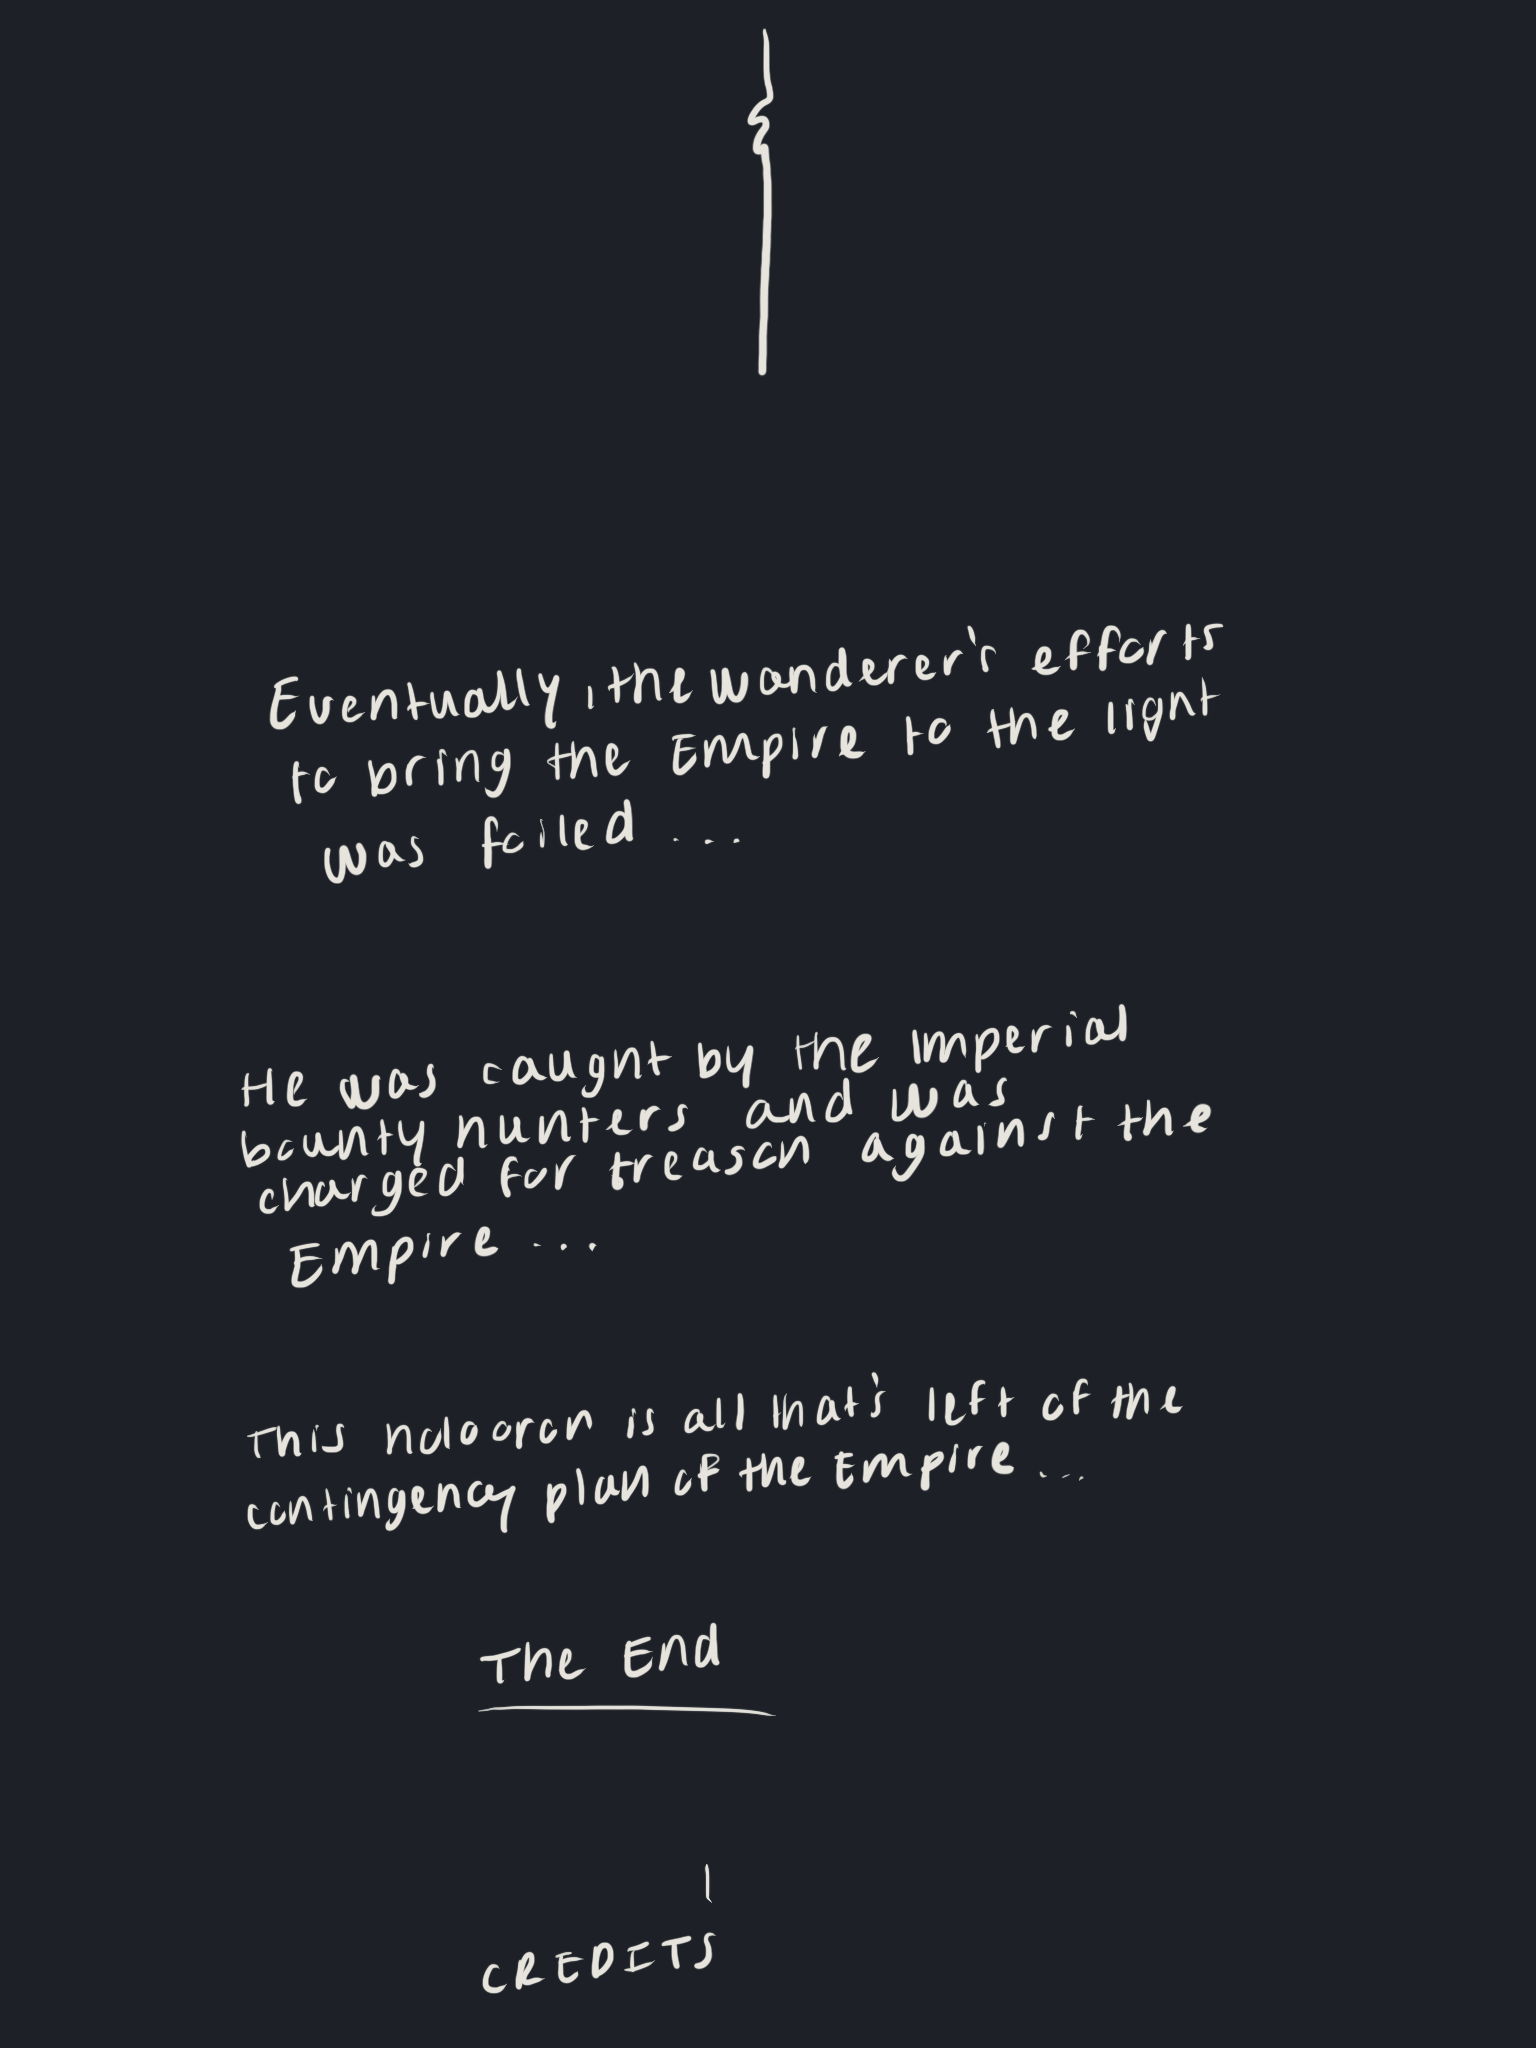 Eventually, the wanderer's efforts
to bring the Empire to the light
was failed ...
He was caught by the Imperial
bounty hunters and was
charged for treason against the
Empire ...
This holocron is all that's left of the
contingency plan of the Empire ...
The End
CREDITS